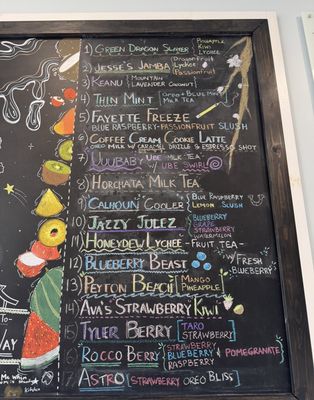 1) GREEN DRAGON SLAYER PINEAPPLE
KIWI
LYCHEE
2) JESSE'S JAMBA Dragonfruit
Lychee
Passionfruit
3) KEANU MOUNTAIN
LAVENDER COCONUT
4) THIN MINT OREO + BLUE MINT
MILK TEA
5) FAYETTE FREEZE
BLUE RASPBERRY-PASSIONFRUIT SLUSH
6) COFFEE CREAM COOKIE LATTE
OREO MILK W/ CARAMEL DRIZZLE & ESPRESSO SHOT
7) UUUBABY UBE MILK TEA
W/ UBE SWIRL
8) HORCHATA MILK TEA
9) CALHOUN COOLER BLUE RASPBERRY
LEMON SLUSH
10) JAZZY JULEZ BLUEBERRY
GRAPE
STRAWBERRY
WATERMELON
11) HONEYDEW LYCHEE - FRUIT TEA -
12) BLUEBERRY BEAST W/ FRESH
BLUEBERRY
13) PEYTON BEACH MANGO
PINEAPPLE
14) AVA'S STRAWBERRY KIWI
15) TYLER BERRY TARO
STRAWBERRY
16) ROCCO BERRY STRAWBERRY
BLUEBERRY
RASPBERRY POMEGRANATE
17) ASTRO STRAWBERRY OREO BLISS